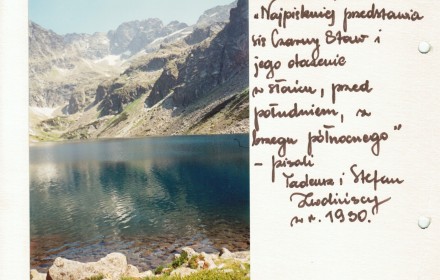 „Najpiękniej przedstawia
się Czarny Staw i
jego otoczenie
w słońcu, przed
południem, z
brzegu północnego"
– pisali
Tadeusz i Stefan
Zwolińscy
w r. 1930.